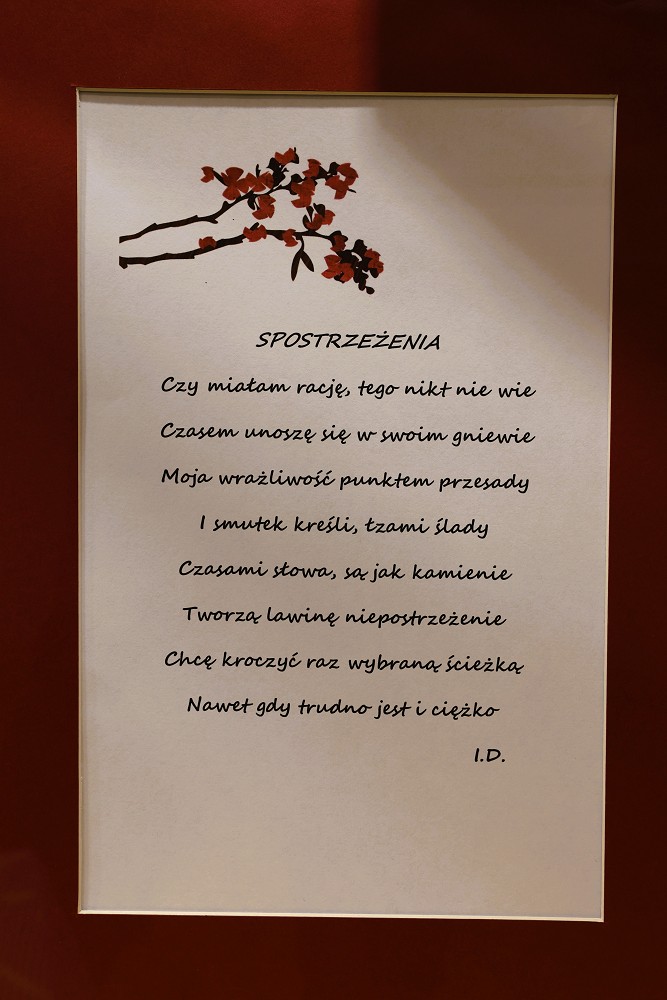 SPOSTRZEŻENIA
Czy miałam rację, tego nikt nie wie
Czasem unoszę się w swoim gniewie
Moja wrażliwość punktem przesady
I smutek kreśli, łzami ślady
Czasami słowa, są jak kamienie
Tworzą lawinę niepostrzeżenie
Chcę kroczyć raz wybraną ścieżką
Nawet gdy trudno jest i ciężko
I.D.